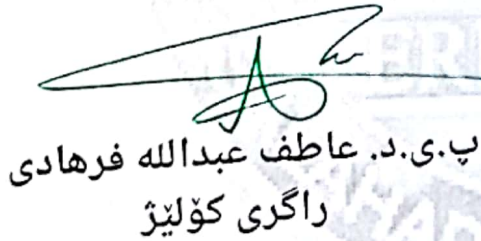 پ.ی.د. عاطف عبدالله فرهادی
راگری کۆلێژ